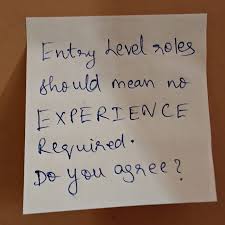 Entry Level roles
should mean no
EXPERIENCE
Required.
Do you agree?